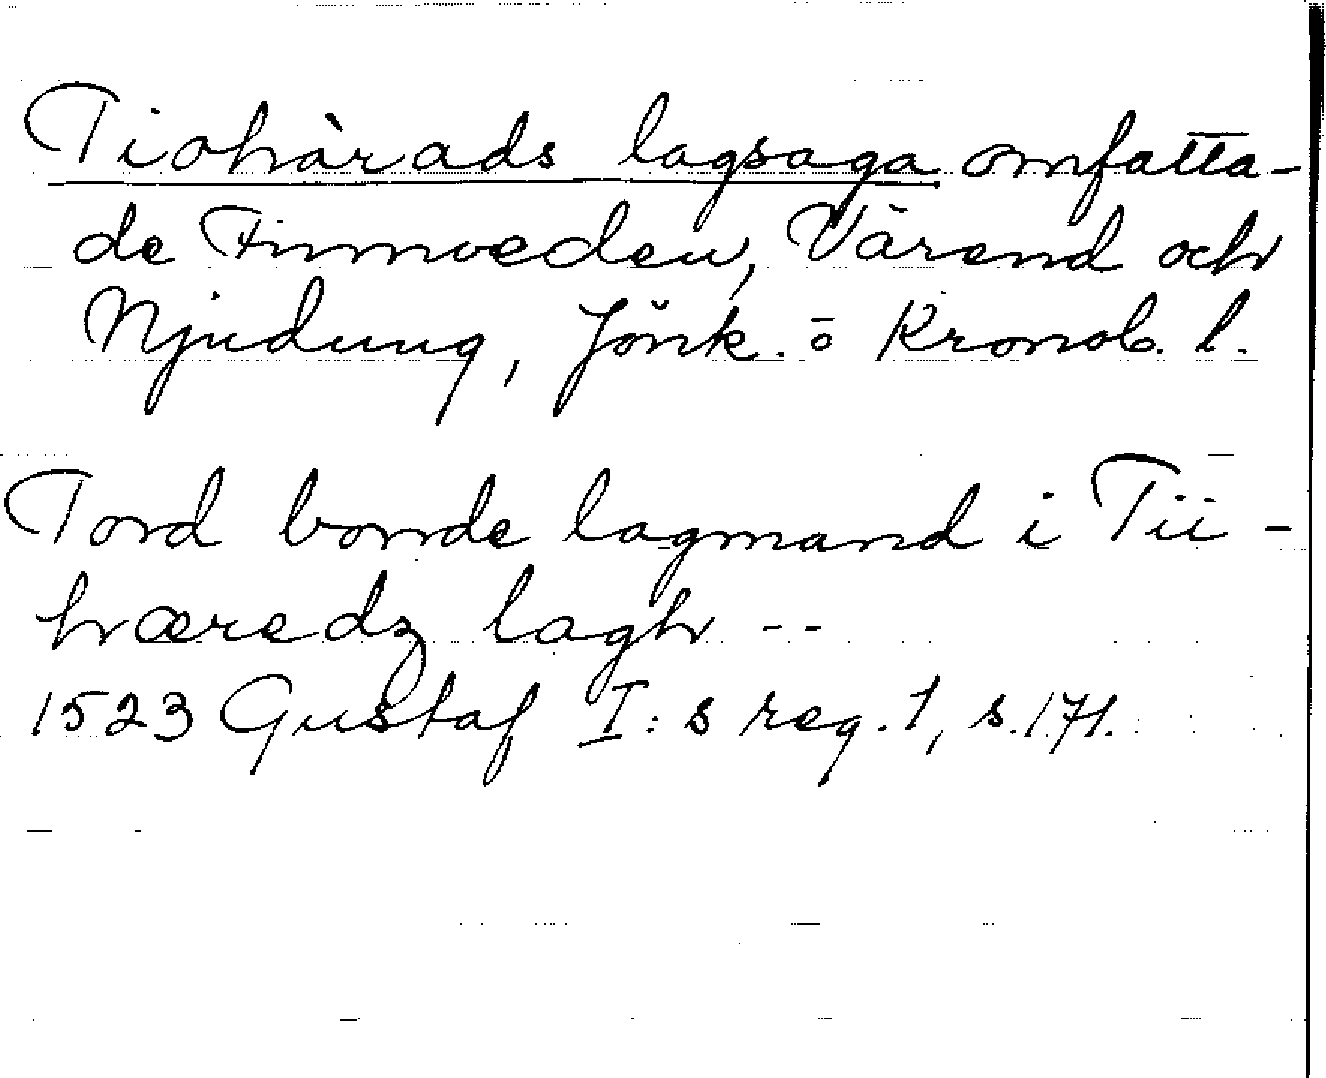 Tiohärads lagsaga omfatta-
de Finnveden, Värend och
Njudung, Jönk. o Kronob. l.
Tord bonde lagmand i Tii-
hæredz lagh --
1523 Gustaf I:s reg. 1, s. 171.